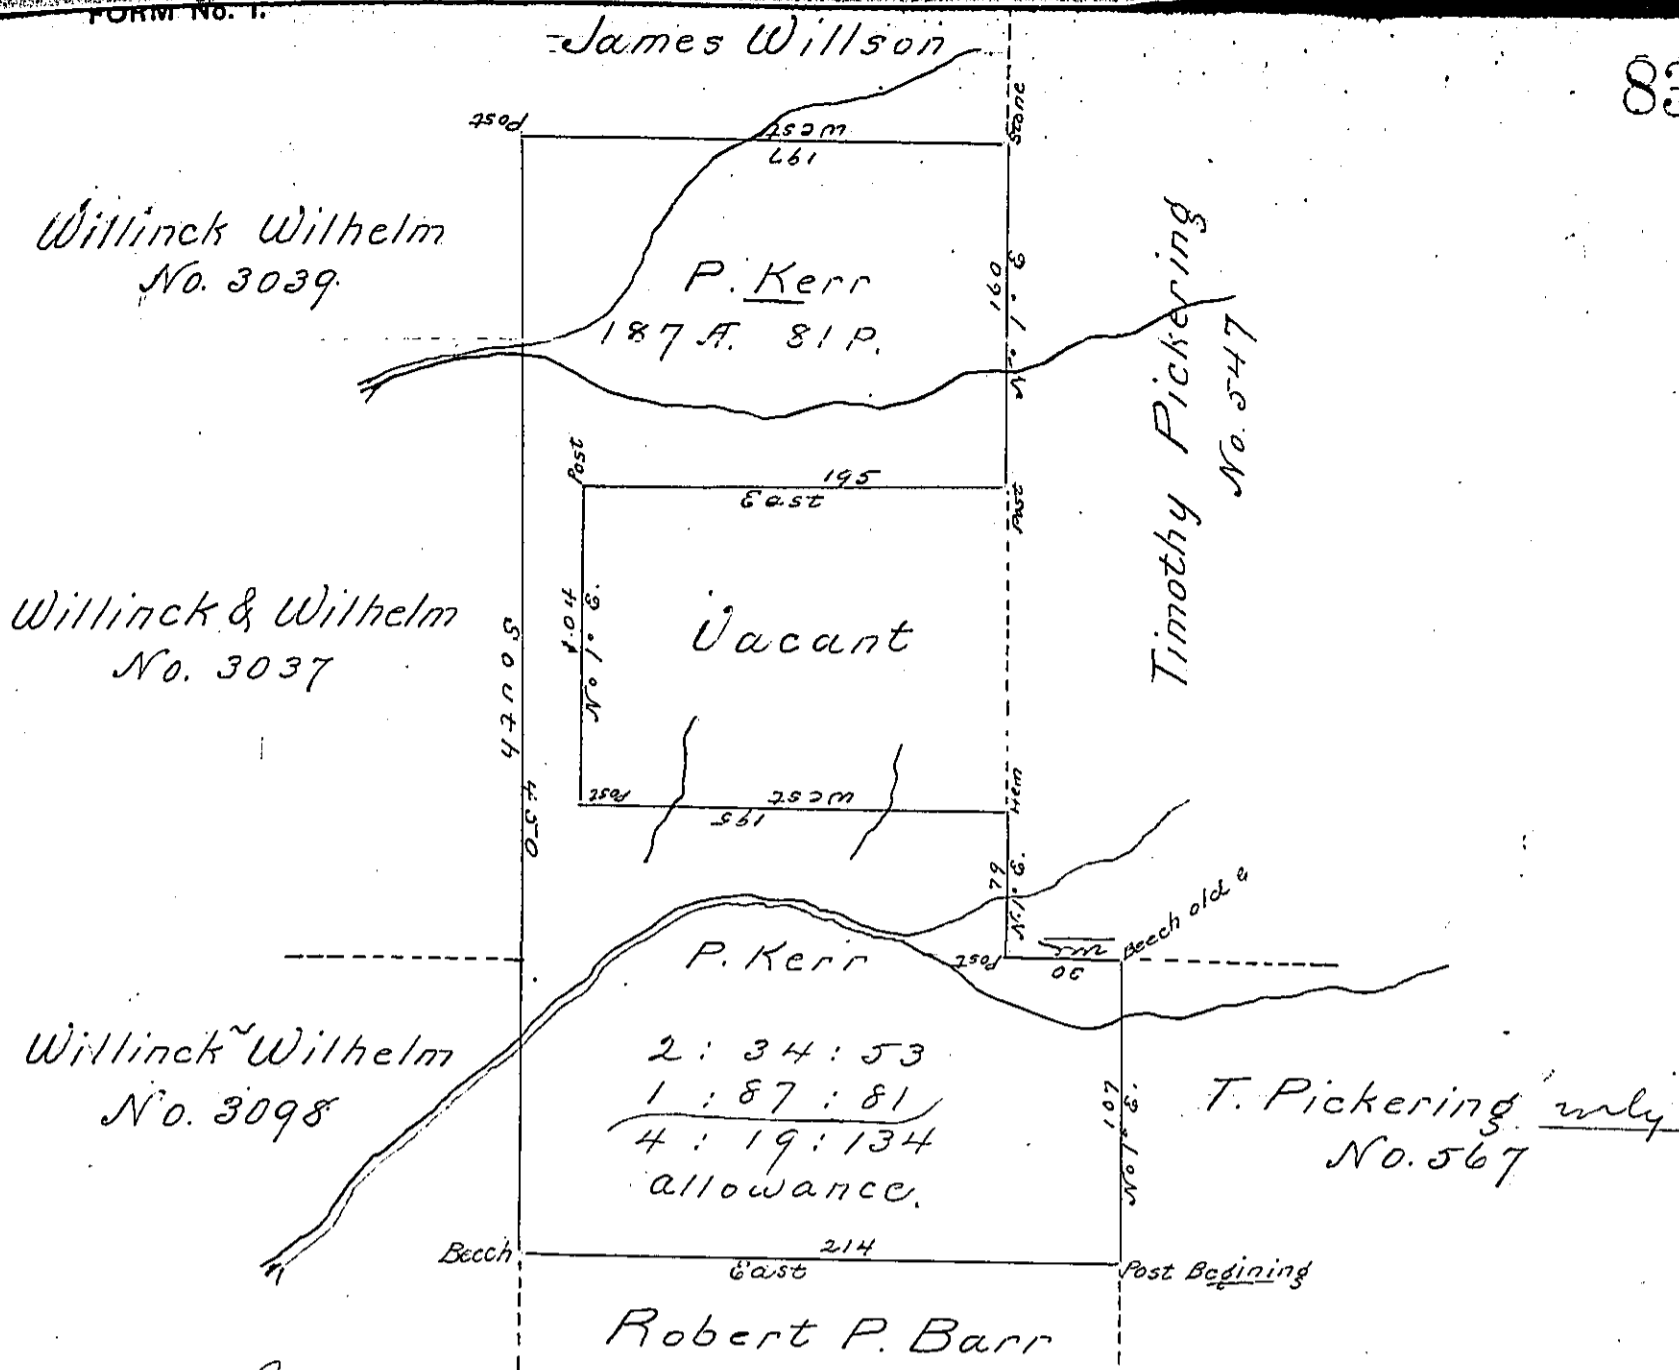 FORM No. 1.
James Willson
83
Post
West
197
Stone
Willinck Wilhelm
No. 3039.
P. Kerr
187 A. 81 P.
160
N. 1° E
Timothy Pickering
No. 547
Post
195
East
Post
Willinck & Wilhelm
No. 3037
South
450
104
No 1° E.
Vacant
Post
West
195
Hem
79
N. 1° E.
Beech old
Post
30
P. Kerr
Willinck Wilhelm
No. 3098
2 : 34 : 53
1 : 87 : 81
4 : 19 : 134
allowance.
107
No 1° E.
T. Pickering
No. 567
Beech
214
East
Post Begining
Robert P. Barr